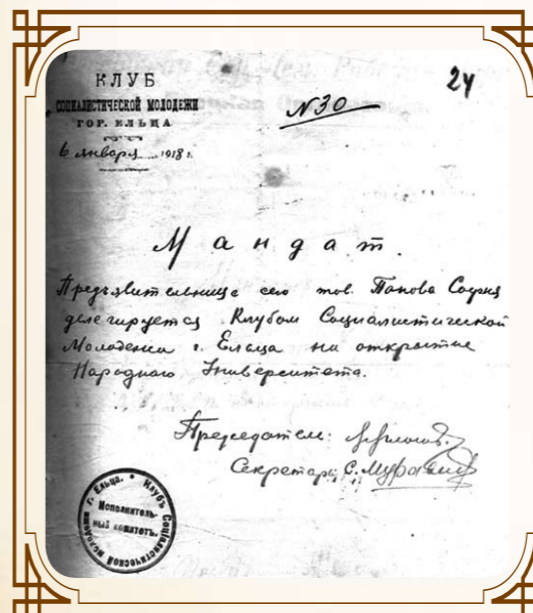 КЛУБ
СОЦИАЛИСТИЧЕСКОЙ МОЛОДЕЖИ
ГОР. ЕЛЬЦА
6 января 1918 г.
N 30
24
Мандат.
Предъявительница сего тов. Попова София
делегируется Клубом Социалистической
Молодежи г. Ельца на открытие
Народного Университета.
Председатель:
Секретарь С.
г. Ельца. • Клубъ Соціалистической молодежи
Исполнитель-
ный комитетъ.